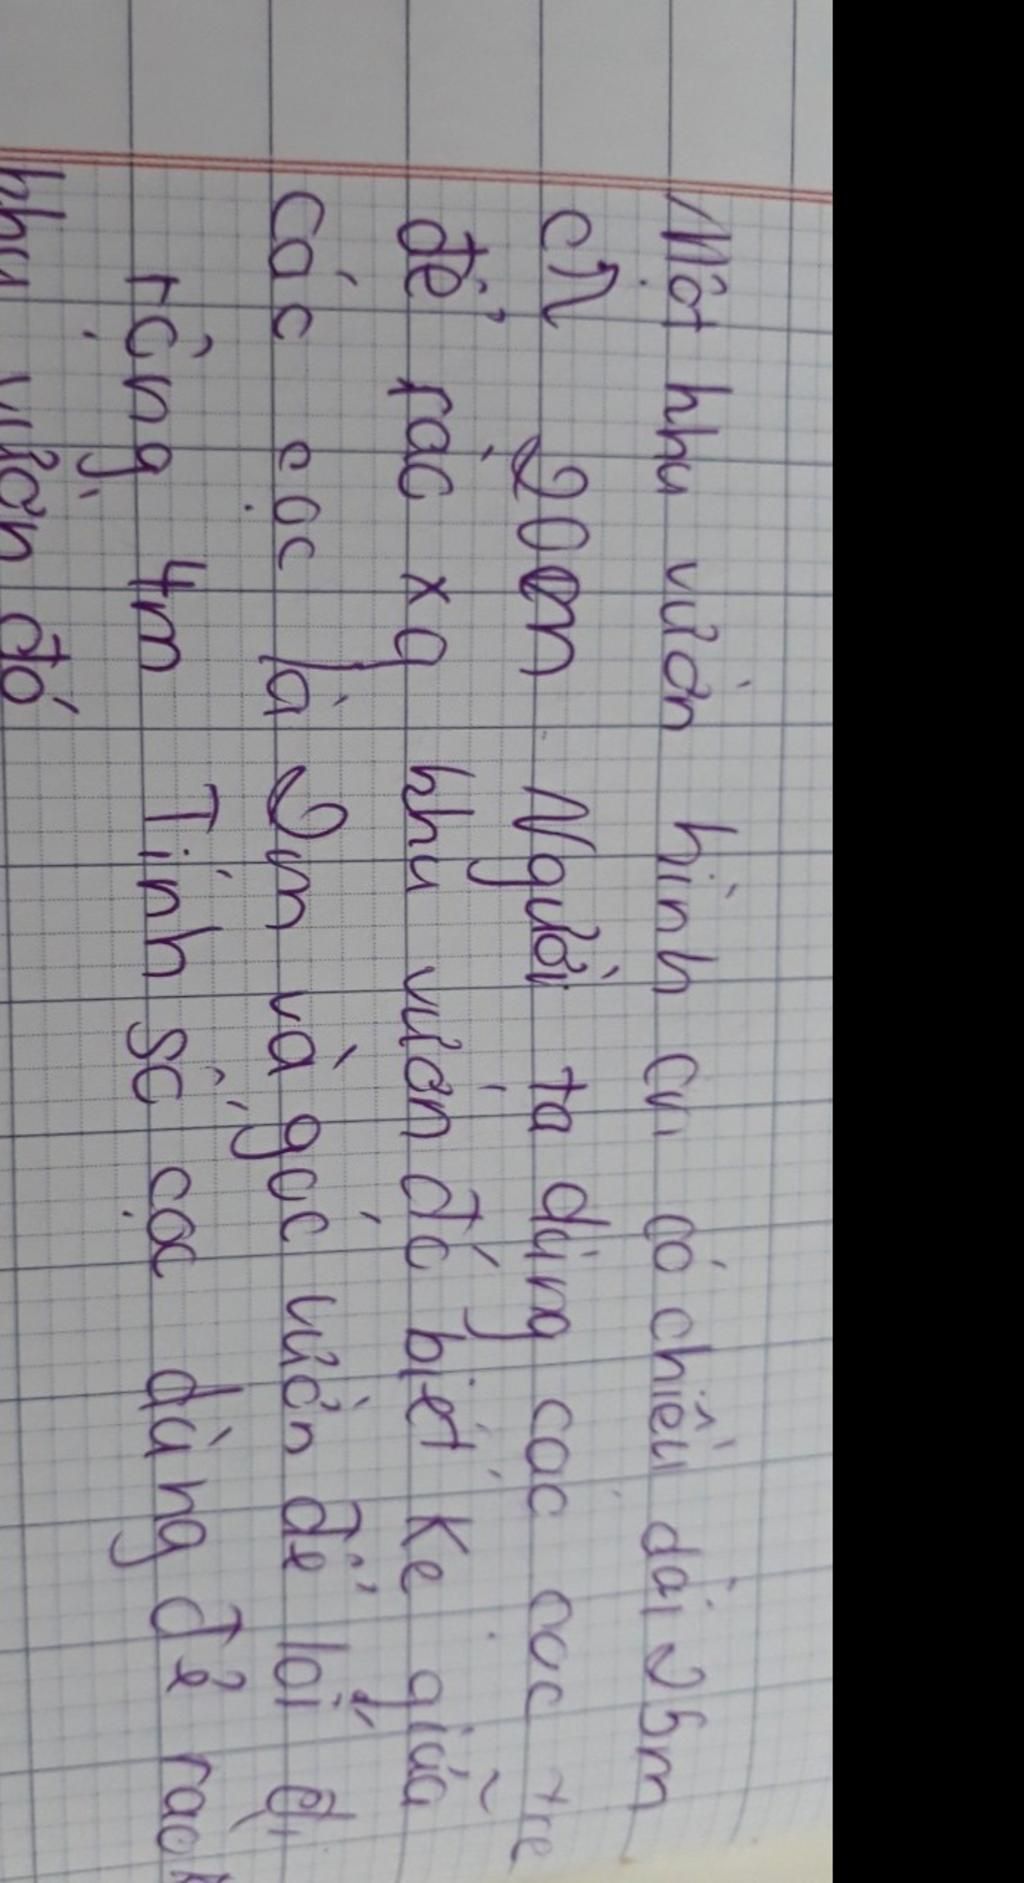 Một khu vườn hình cn có chiều dài 25m
CR 20m Người ta dùng các cọc tre
để rác xq khu vườn đó biết Kẻ giữa
Các cọc là 2m và góc vườn để lối đi
rộng 4m Tính số cọc dùng để rào
khu vườn đó